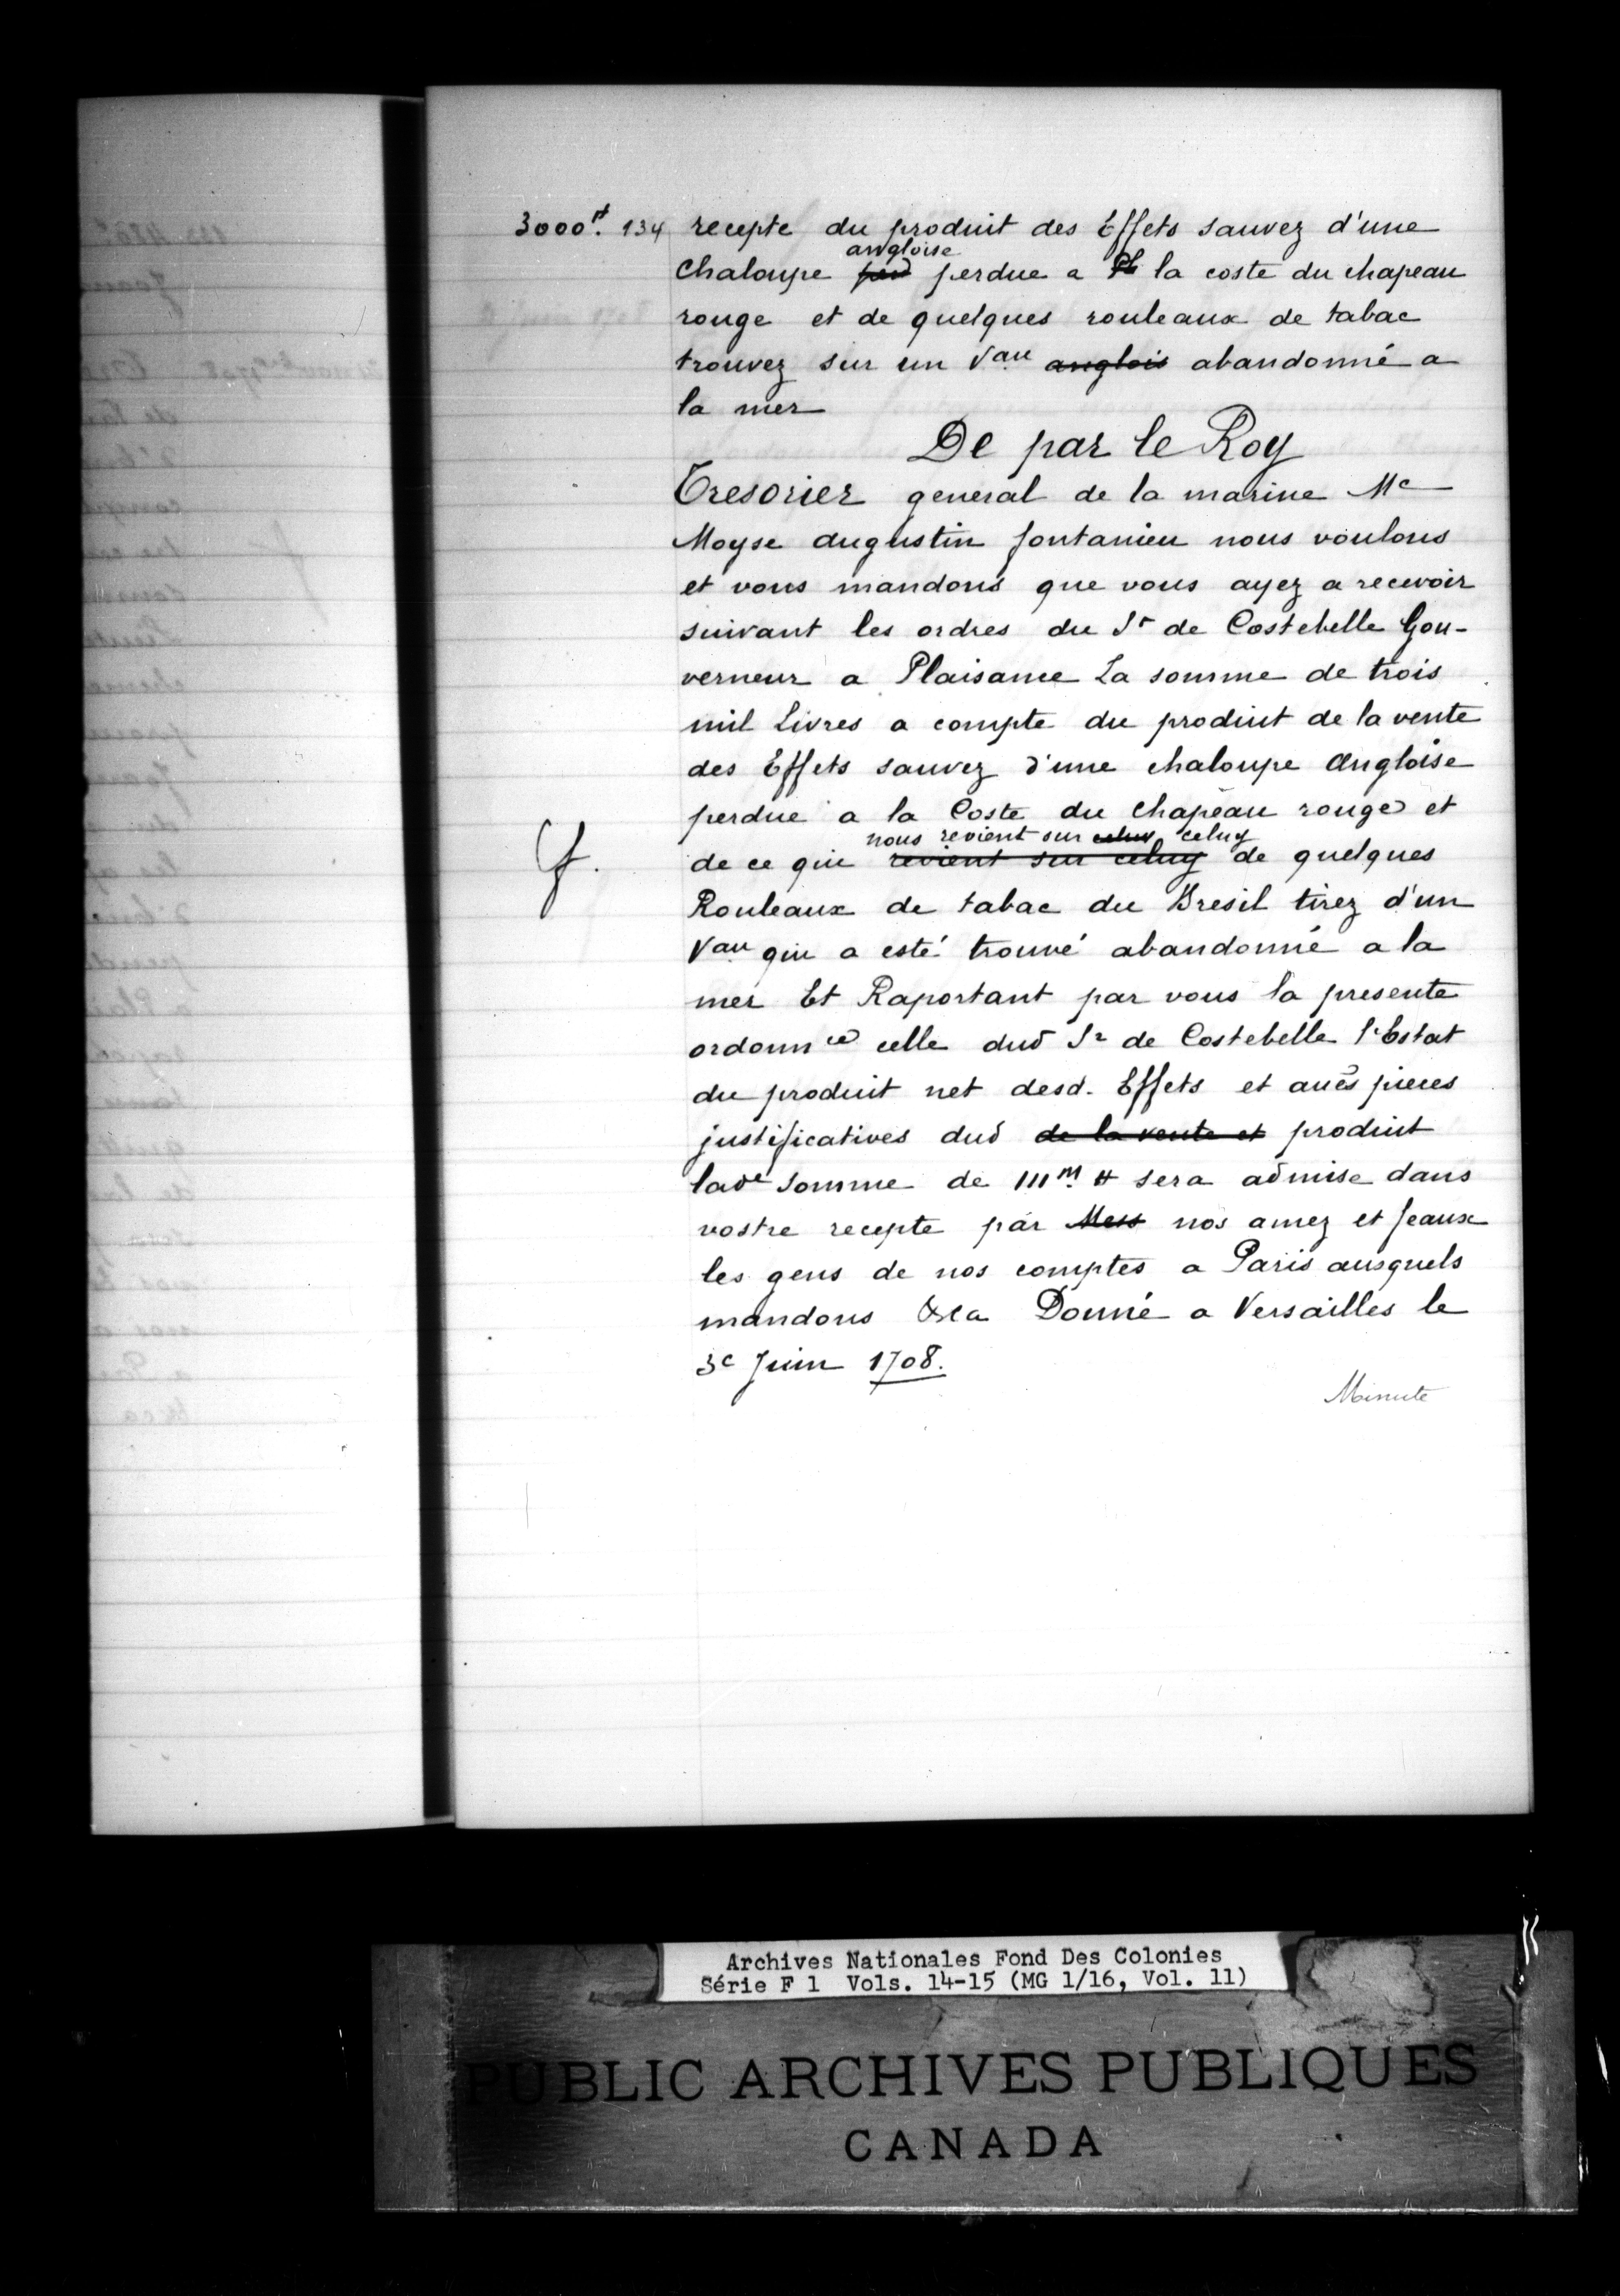 3000tt. 134 recepte du produit des Effets sauvez d'une
angloise
Chaloupe per perdue a Pl la coste du chapeau
rouge et de quelques rouleaux de tabac
trouvez sur un Vau anglois abandonné a
la mer
De par le Roy
Tresorier general de la marine Me
Moyse augustin fontanieu nous voulons
et vous mandons que vous ayez a recevoir
suivant les ordres du Sr de Costebelle Gou-
verneur a Plaisance La somme de trois
mil Livres a compte du produit de la vente
des Effets sauvez d'une chaloupe Angloise
perdue a la Coste du Chapeau rouge et
nous revient sur celuy celuy
f. de ce qui revient sur celuy de quelques
Rouleaux de tabac du Bresil tirez d'un
Vau qui a esté trouvé abandonné a la
mer Et Raportant par vous la presente
ordonnce celle dud Sr de Costebelle l'Estat
du produit net desd. Effets et aues pieces
justificatives dud de la vente et produit
lade somme de IIIM. tt sera admise dans
vostre recepte par Mess nos amez et feaux
les gens de nos comptes a Paris ausquels
mandons &ca Donné a Versailles le
3e Juin 1708.
Minute
Archives Nationales Fond Des Colonies
Série F 1 Vols. 14-15 (MG 1/16, Vol. 11)
PUBLIC ARCHIVES PUBLIQUES
CANADA